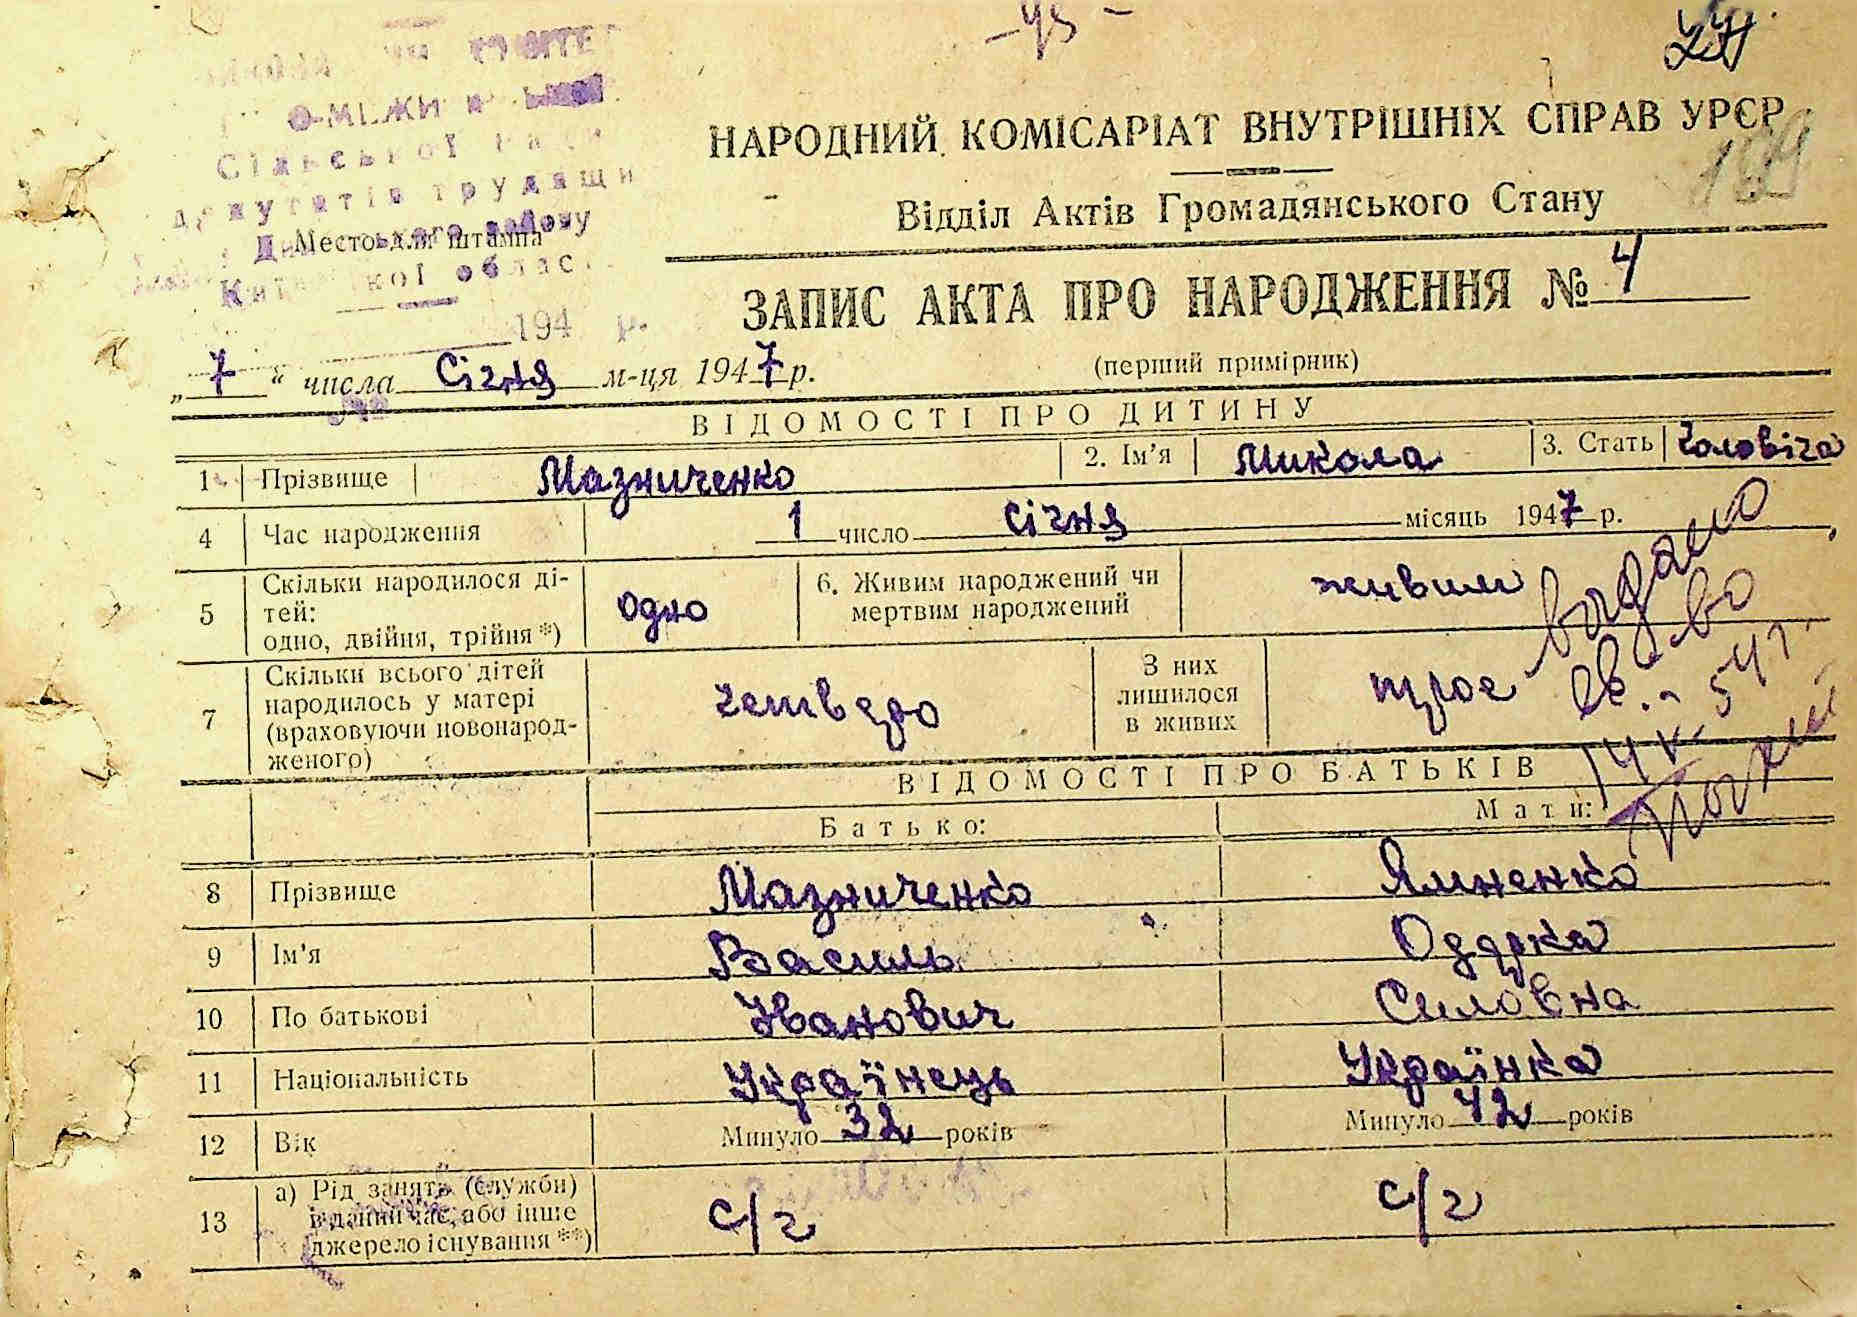 -43-
НАРОДНИЙ КОМІСАРІАТ ВНУТРІШНІХ СПРАВ УРЄР
Відділ Актів Громадянського Стану
Сільської
депутатів трудящи
Место для штампа
Київської облас
194 р.
ЗАПИС АКТА ПРО НАРОДЖЕННЯ № 4
(перший примірник)
„7“ числа Січня м-ця 1947 р.
ВІДОМОСТІ ПРО ДИТИНУ
1 Прізвище Мазниченко 2. Ім'я Микола 3. Стать Чоловіча
4 Час народження 1 число Січня місяць 1947 р.
5 Скільки народилося ді-
тей:
одно, двійня, трійня *) одно 6. Живим народжений чи
мертвим народжений живим
7 Скільки всього дітей
народилось у матері
(враховуючи новонарод-
женого) четверо З них
лишилося
в живих троє
видано
св-во
ВІДОМОСТІ ПРО БАТЬКІВ
Батько: Мати:
8 Прізвище Мазниченко Ямненко
9 Ім'я Василь Одарка
10 По батькові Іванович Силовна
11 Національність Українець Українка
12 Вік Минуло 32 років Минуло 42 років
13 а) Рід занять (служби)
в даний час, або інше
джерело існування **) с/г с/г